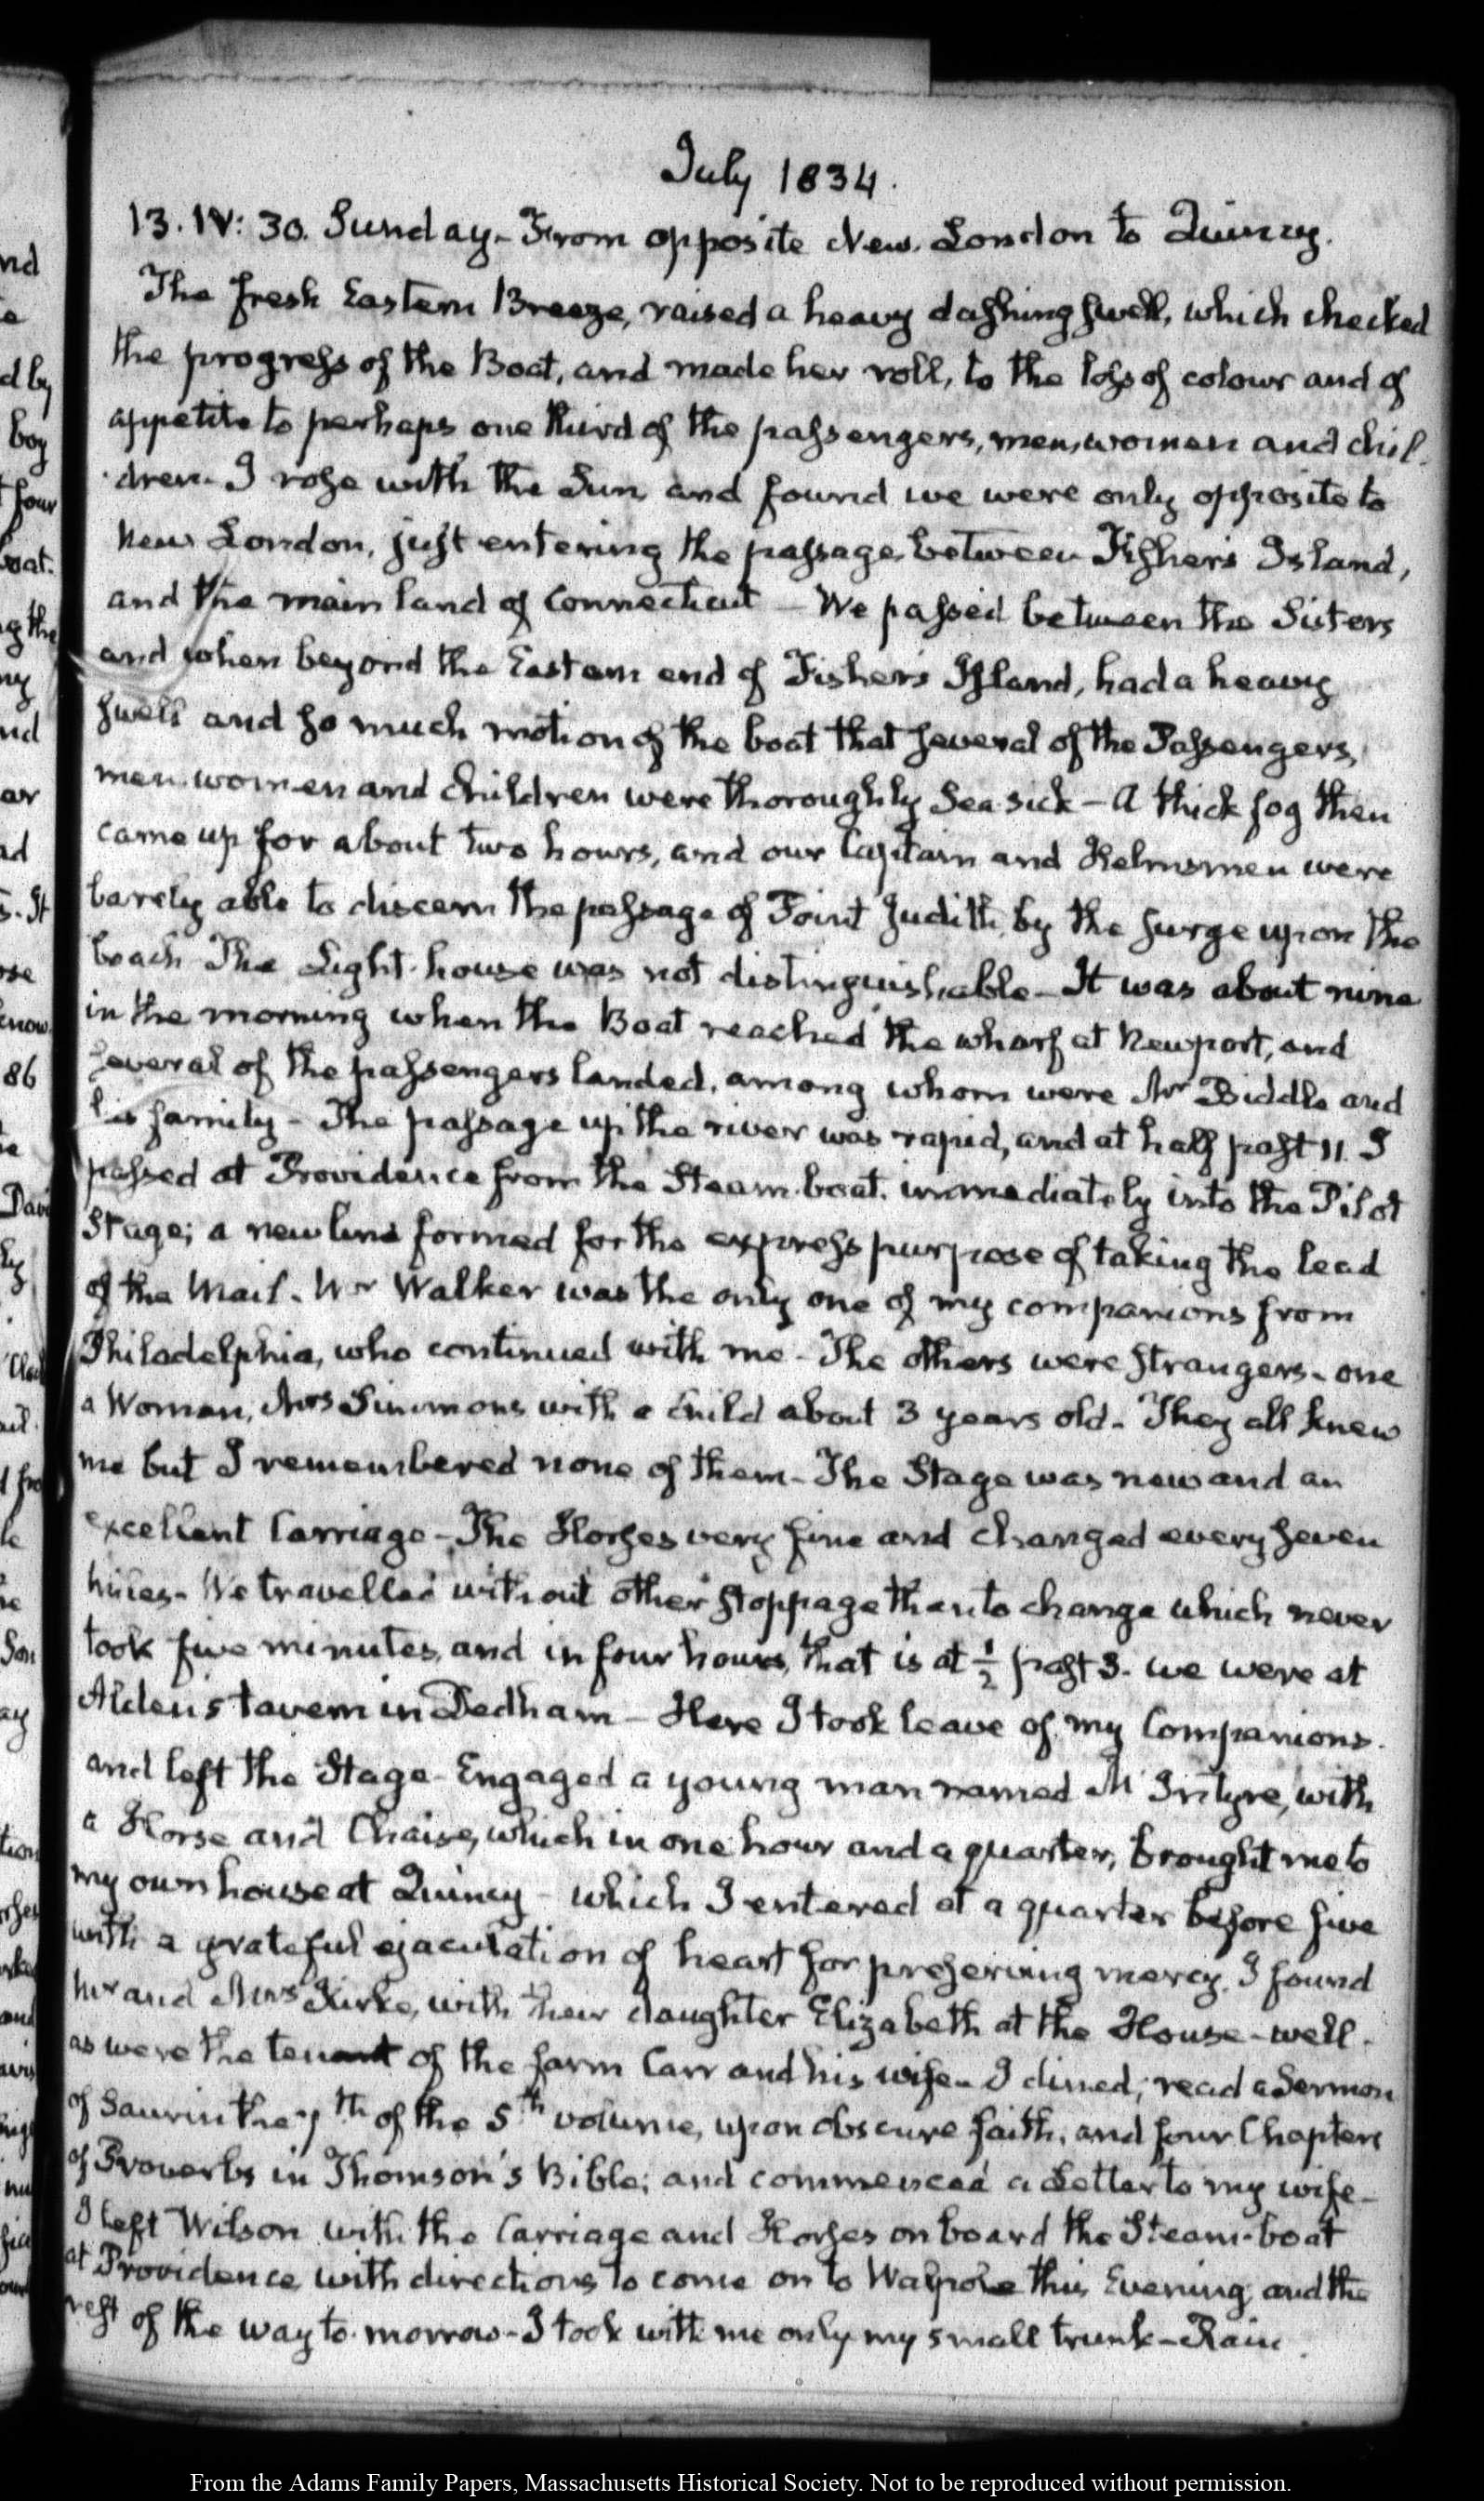 July 1834.
13. IV: 30. Sunday - From opposite New London to Quincy.
The fresh Eastern Breeze, raised a heavy dashing swell, which checked
the progress of the Boat, and made her roll, to the loss of colour and of
appetite to perhaps one third of the passengers, men, women and chil-
dren. I rose with the Sun, and found we were only opposite to
New London, just entering the passage between Fisher's Island,
and the main land of Connecticut - We passed between the Sisters
and when beyond the Eastern end of Fisher's Island, had a heavy
swell and so much motion of the boat that several of the Passengers,
men women and children were thoroughly Sea sick - A thick fog then
came up for about two hours, and our Captain and Helmsmen were
barely able to discern the passage of Point Judith, by the surge upon the
beach The Light-house was not distinguishable - It was about nine
in the morning when the Boat reached the wharf at Newport, and
several of the passengers landed, among whom were Mr Biddle and
his family - The passage up the river was rapid, and at half past 11. I
passed at Providence from the Steam-boat, immediately into the Pilot
Stage; a new line formed for the express purpose of taking the lead
of the Mail. Mr Walker was the only one of my companions from
Philadelphia, who continued with me - The others were strangers - one
a Woman, Mrs Simmons with a child about 3 years old. They all knew
me but I remembered none of them - The Stage was new and an
excellent Carriage - The Horses very fine and changed every seven
miles - We travelled without other stoppage than to change which never
took five minutes, and in four hours, that is at ½ past 3. we were at
Alden's tavern in Dedham - Here I took leave of my Companions.
and left the Stage - Engaged a young man named Mc Intyre, with
a Horse and Chaise, which in one hour and a quarter, brought me to
my own house at Quincy - which I entered at a quarter before five
with a grateful ejaculation of heart for preserving mercy. I found
Mr and Mrs Kirke, with their daughter Elizabeth at the House - well.
as were the tenant of the farm Carr and his wife - I dined; read a Sermon
of Saurin the 7th of the 5th volume, upon obscure faith, and four Chapters
of Proverbs in Thomson's Bible; and commenced a Letter to my wife -
I left Wilson with the Carriage and Horses on board the Steam-boat
at Providence with directions to come on to Walpole this Evening and the
rest of the way to-morrow - I took with me only my small trunk - Rain.
From the Adams Family Papers, Massachusetts Historical Society. Not to be reproduced without permission.